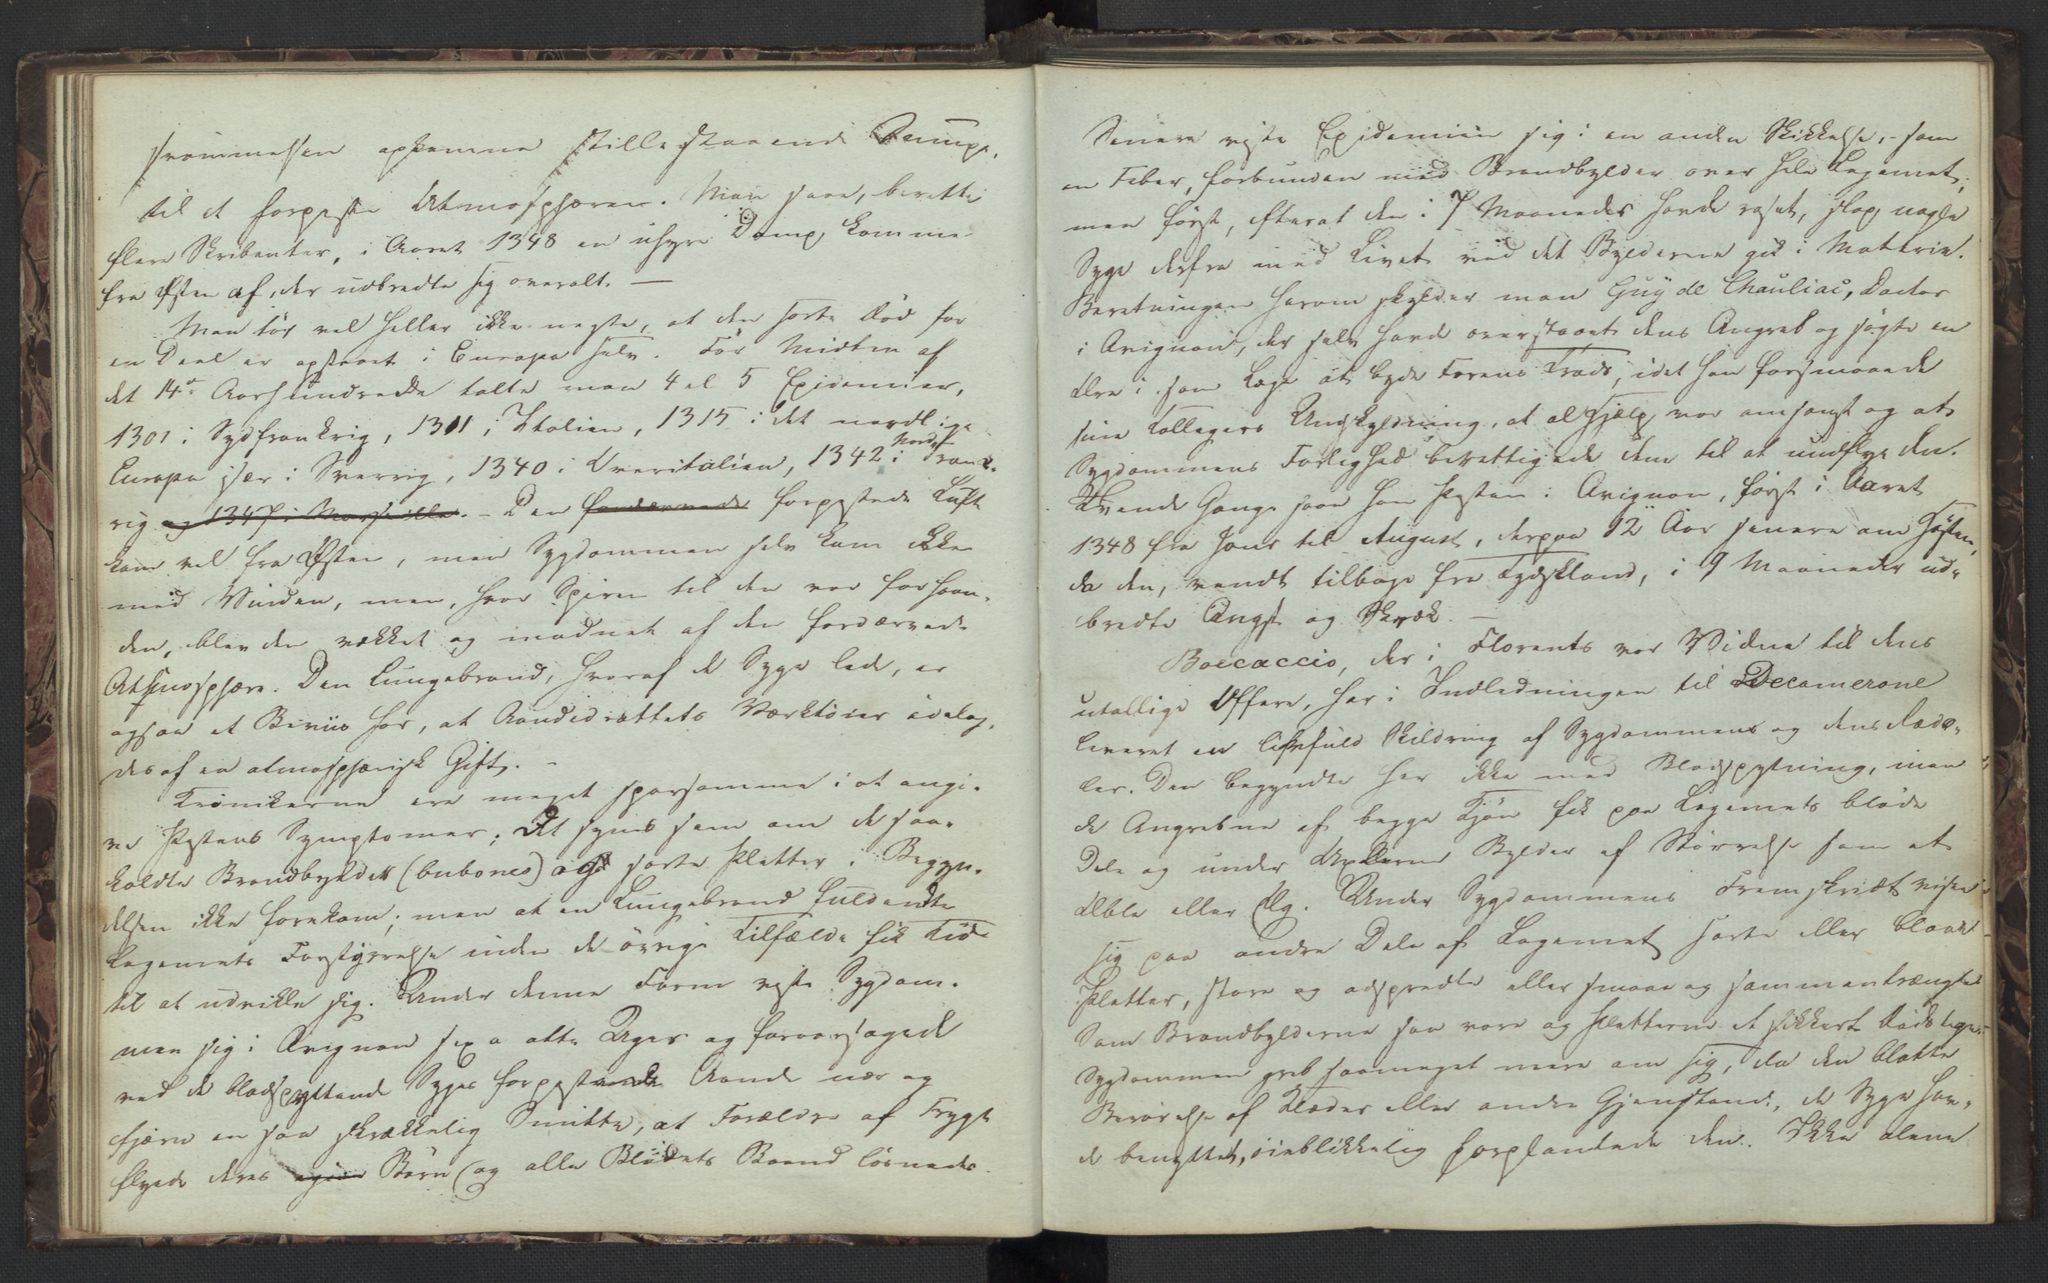 svømmelsen opkomne stillestaaende Sumpe,
til et forpestet Atmosphæren. Man saae, berette
flere Skribenter, i Aaret 1348 en uhyre Damp komme
fra Østen af, der udbredte sig overalt. —
Man tør vel heller ikke negte, at den sorte Død for
en Deel er opstaaet i Europa selv. Før Midten af
det 14de Aarhundrede talte man 4 el 5 Epidemier,
1301 i Sydfrankrig, 1311 i Italien, 1315 i det nordlige
Europa især i Sverrig, 1340 i Overitalien, 1342 i Nord Frank-
rig og 1347 i Marseille. - Den fordærvede forpestede Luft
kom vel fra Østen, men Sygdommen selv kom ikke
med Vinden, men, hvor Spiren til den var forhaan-
den, blev den vækket og modnet af den fordærvede
Atmosphære. Den Lungebrand, hvoraf de Syge led, er
ogsaa et Beviis for, at Aandedrættets Værktøier ødelag-
des af en atmosphærisk Gift. -
Krønikerne ere meget sparsomme i at angi-
ve Pestens Symptomer; Det synes som om de saa-
kaldte Brandbylder (bubones) og sorte Pletter i Begyn-
delsen ikke forekom; men at en Lungebrand fuldendte
Legemets Forstyrrelse inden de øvrige Tilfælde fik Tid
til at udvikle sig. Under denne Form viste Sygdom-
men sig i Avignon sex a otte Uger og foraarsagede
ved de blodspyttende Syges forpestende Aande nær og
fjern en saa skrækkelig Smitte, at Forældre af Frygt
flyede deres egne Børn (og alle Blodets Baand løsnede
Senere viste Epidemien sig i en anden Skikkelse, som
en Feber, forbunden med Brandbylder over hele Legemet;
men først, efterat den i 7 Maaneder havde raset, slap nogle
Syge derfra med Livet ved det Bylderne gik i Materie.
Beretningen herom skylder man Guy de Chauliac, Doctor
i Avignon, der selv havde overstaaet dens Angreb og søgte en
Ære i som Læge at byde Faren Trods, idet han forsmaaede
sine Kollegers Undskyldning, at al Hjælp var omsonst og at
Sygdommens Farlighed berettigede dem til at undflye den.
Tvende Gange saae han Pesten i Avignon, først i Aaret
1348 fra Janr til August, derpaa 12 Aar senere om Høsten,
da den, vendt tilbage fra Tydskland, i 9 Maaneder ud-
bredte Angst og Skræk. —
Boccaccio, der i Florents var Vidne til dens
utallige Offere, har i Indledningen til Decamerone
leveret en livfuld Skildring af Sygdommens og dens Læde-
ler. Den begyndte her ikke med Blodspytning, men
de Angrebne af begge Kjøn fik paa Legemets bløde
Dele og under Axlerne Bylder af Størrelse som et
Æble eller Æg. Under Sygdommens Fremskridt viste
sig paa andre Dele af Legemet sorte eller blaae
Pletter, store og adspredte eller smaae og sammentrængte
Som Brandbylderne saa vare og Pletterne et sikkert Dødstegn
Sygdommen greb saameget mere om sig, da den blotte
Berørelse af Klæder eller andre Gjenstande, de Syge hav-
de benyttet, øieblikkelig forplantede den. Ikke alene